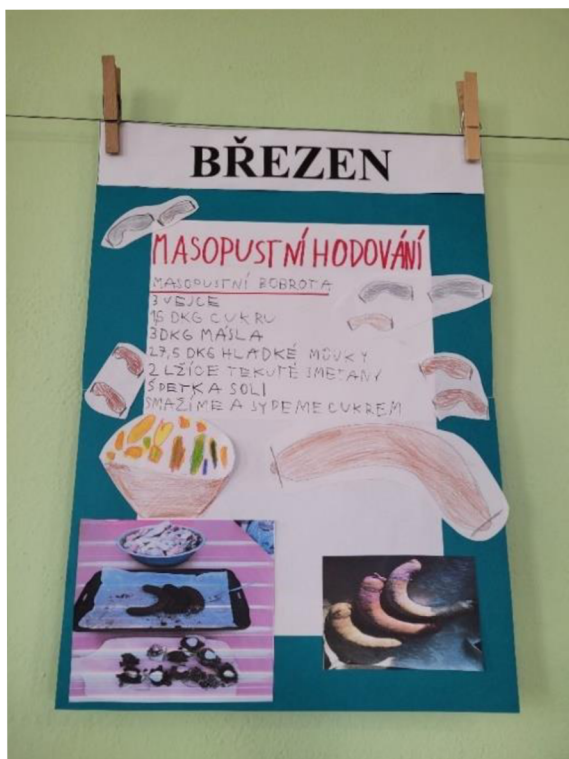 BŘEZEN
MASOPUSTNÍ HODOVÁNÍ
MASOPUSTNÍ BOBROTA
3 VEJCE
16 DKG CUKRU
3 DKG MÁSLA
27,5 DKG HLADKÉ MOUKY
2 LŽÍCE TEKUTÉ SMETANY
ŠPETKA SOLI
SMAŽÍME A SYPEME CUKREM